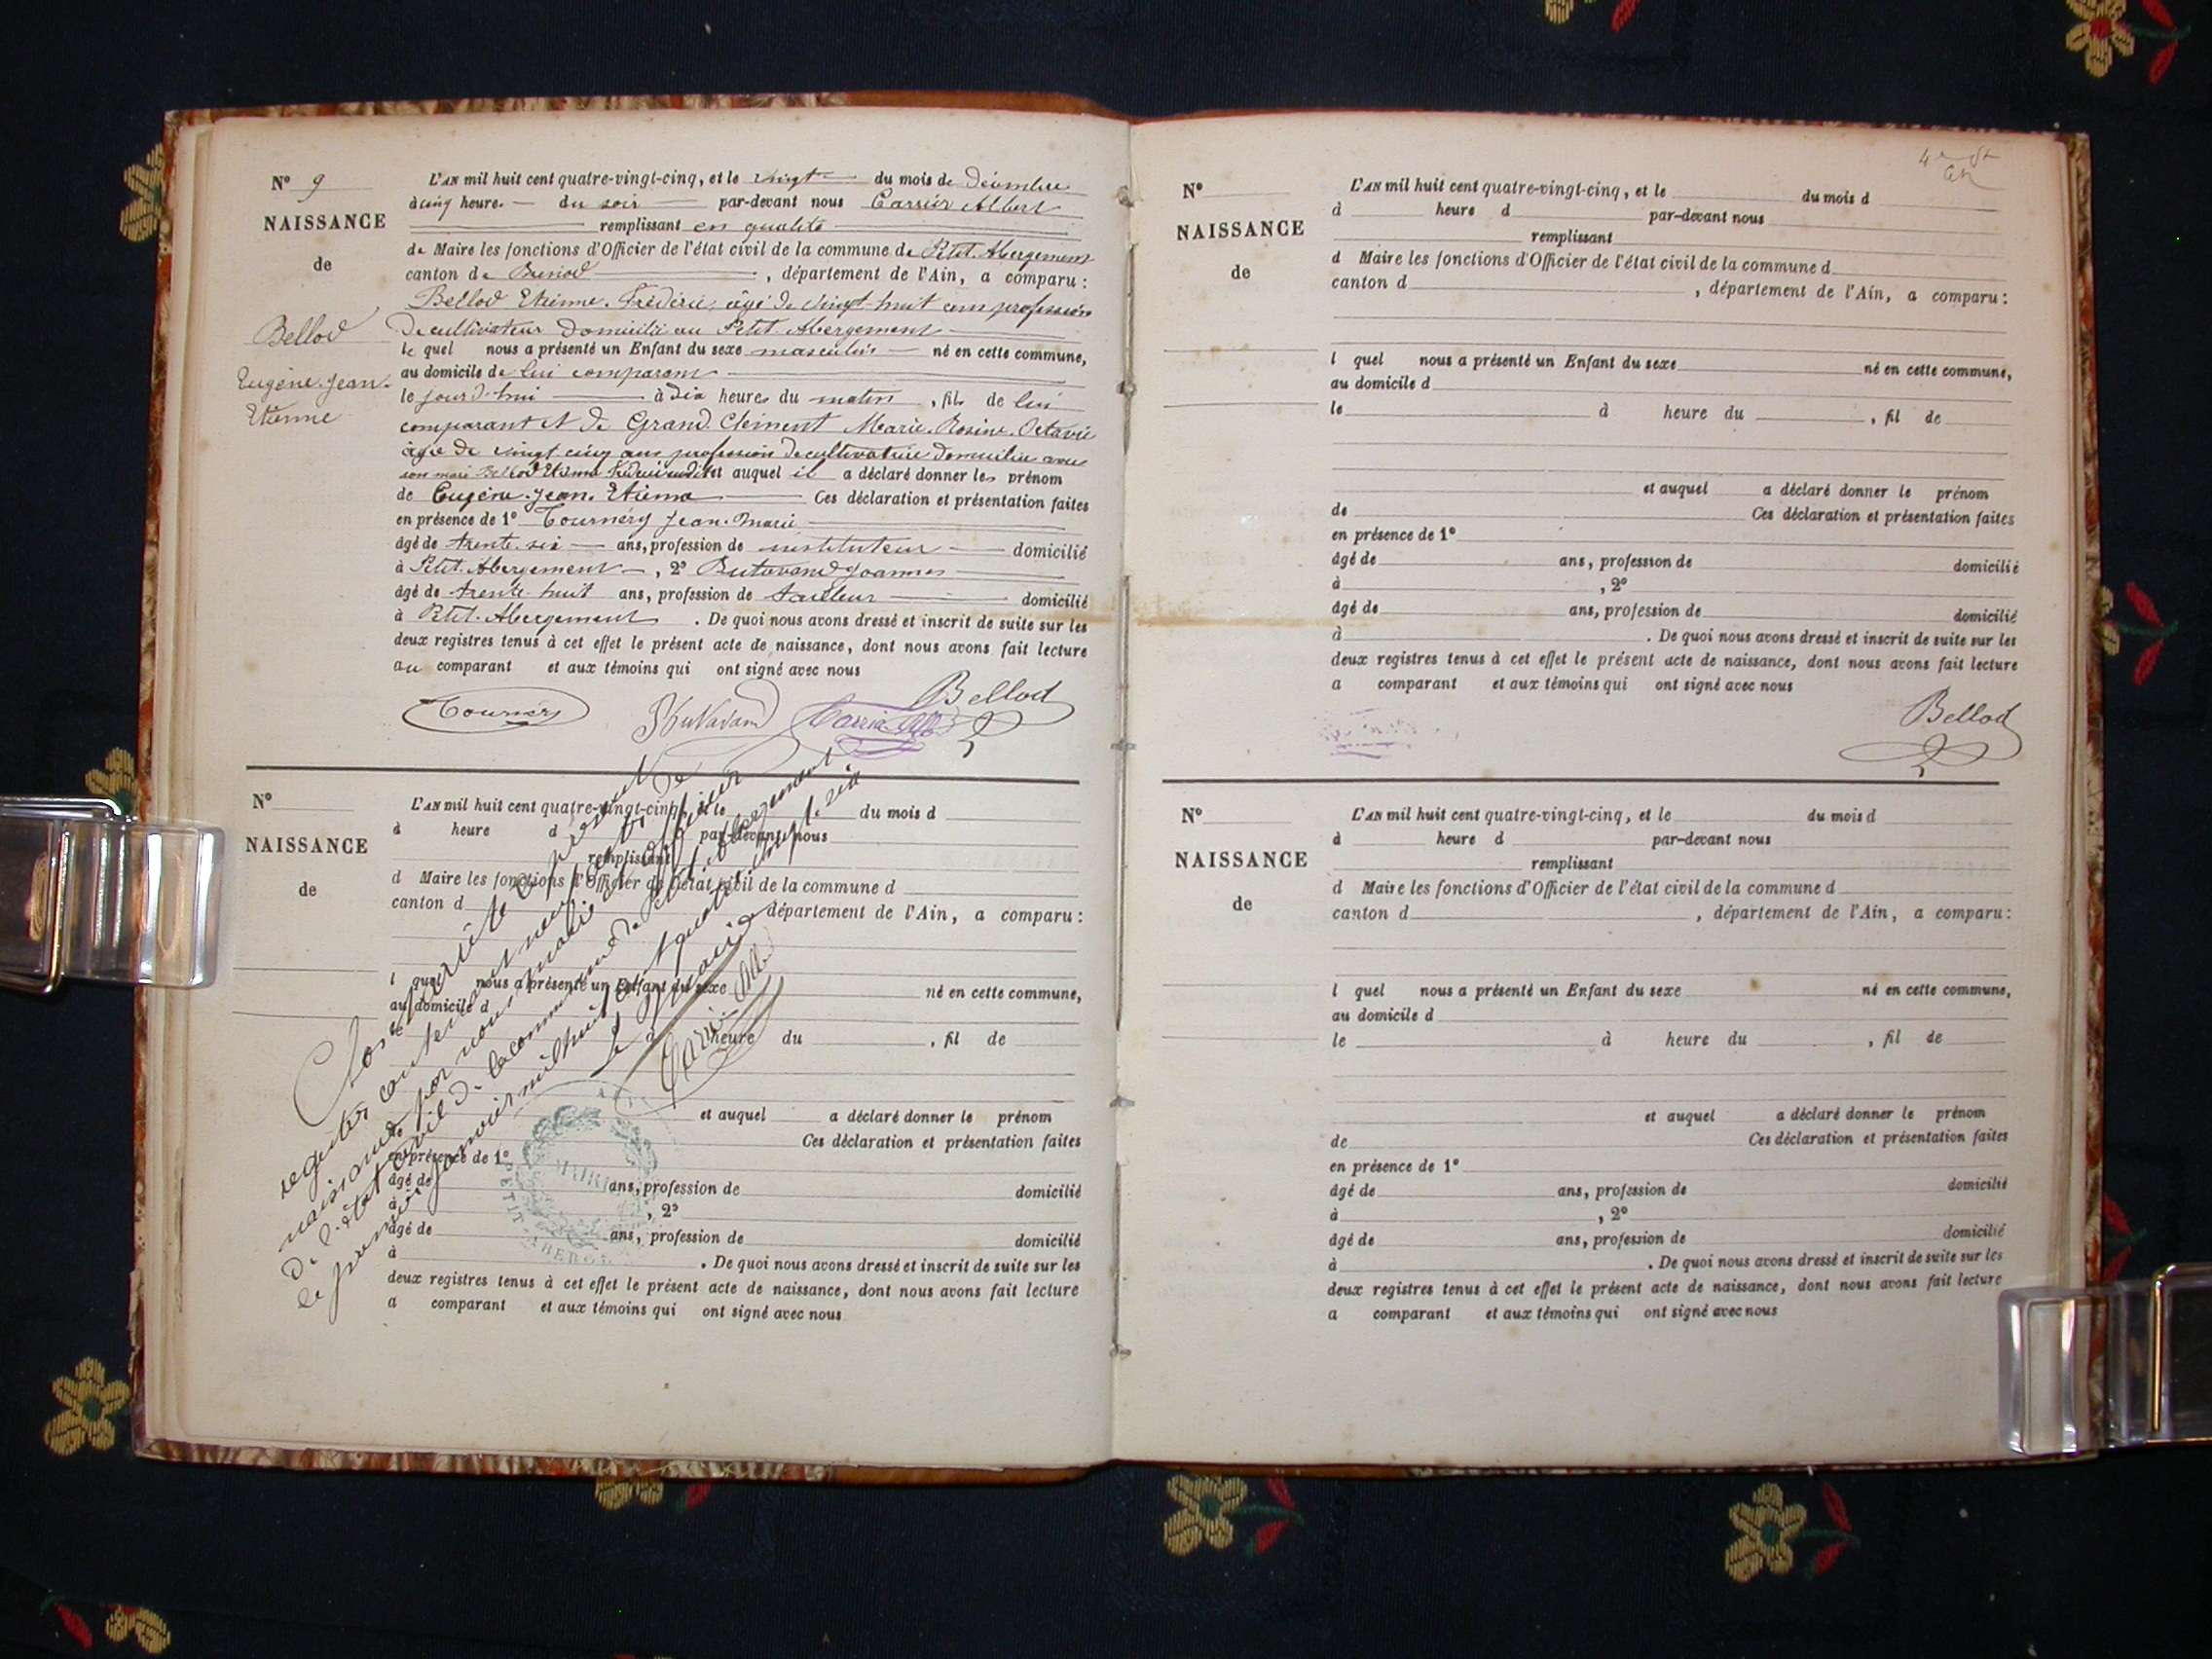 N° 9
NAISSANCE
de
Bellod
Eugène Jean
Etienne
L'AN mil huit cent quatre-vingt-cinq, et le vingt du mois de Décembre
à cinq heures du soir par-devant nous Carrier Albert
remplissant en qualité
de Maire les fonctions d'Officier de l'état civil de la commune de Petit-Abergement
canton de Brénod, département de l'Ain, a comparu:
Bellod Etienne Frédéric, âgé de vingt-huit ans profession
de cultivateur domicilié au Petit-Abergement
le quel nous a présenté un Enfant du sexe masculin né en cette commune,
au domicile de lui comparant
le jour d'hui à dix heures du matin, fils de lui
comparant et de Grand Clément Marie Rosine Octavie
âgée de vingt cinq ans profession de cultivatrice domiciliée avec
son mari Bellod Etienne Frédéric susdit et auquel il a déclaré donner les prénom
de Eugène Jean Etienne Ces déclaration et présentation faites
en présence de 1° Tournéry Jean-Marie
âgé de trente-six ans, profession de instituteur domicilié
à Petit-Abergement, 2° Butavand Joannes
âgé de trente-huit ans, profession de tailleur domicilié
à Petit-Abergement. De quoi nous avons dressé et inscrit de suite sur les
deux registres tenus à cet effet le présent acte de naissance, dont nous avons fait lecture
au comparant et aux témoins qui ont signé avec nous
Bellod
N°
NAISSANCE
de
L'AN mil huit cent quatre-vingt-cinq, et le du mois d
à heure d par-devant nous
remplissant
d Maire les fonctions d'Officier de l'état civil de la commune d
canton d département de l'Ain, a comparu:
l quel nous a présenté un Enfant du sexe né en cette commune,
au domicile d
le à heure du , fil de
et auquel a déclaré donner le prénom
de Ces déclaration et présentation faites
en présence de 1°
âgé de ans, profession de domicilié
à , 2°
âgé de ans, profession de domicilié
à . De quoi nous avons dressé et inscrit de suite sur les
deux registres tenus à cet effet le présent acte de naissance, dont nous avons fait lecture
a comparant et aux témoins qui ont signé avec nous
Clos et arrêté le présent
registre contenant neuf actes de
naissance par nous maire officier
de l'état civil de la commune de Petit-Abergement
le premier janvier mil huit cent quatre vingt-six
Le Maire
MAIRIE
PETIT ABERGEMENT
N°
NAISSANCE
de
L'AN mil huit cent quatre-vingt-cinq, et le du mois d
à heure d par-devant nous
remplissant
d Maire les fonctions d'Officier de l'état civil de la commune d
canton d , département de l'Ain, a comparu:
l quel nous a présenté un Enfant du sexe né en cette commune,
au domicile d
le à heure du , fil de
et auquel a déclaré donner le prénom
de Ces déclaration et présentation faites
en présence de 1°
âgé de ans, profession de domicilié
à , 2°
âgé de ans, profession de domicilié
à . De quoi nous avons dressé et inscrit de suite sur les
deux registres tenus à cet effet le présent acte de naissance, dont nous avons fait lecture
a comparant et aux témoins qui ont signé avec nous
Bellod
N°
NAISSANCE
de
L'AN mil huit cent quatre-vingt-cinq, et le du mois d
à heure d par-devant nous
remplissant
d Maire les fonctions d'Officier de l'état civil de la commune d
canton d , département de l'Ain, a comparu:
l quel nous a présenté un Enfant du sexe né en cette commune,
au domicile d
le à heure du , fil de
et auquel a déclaré donner le prénom
de Ces déclaration et présentation faites
en présence de 1°
âgé de ans, profession de domicilié
à , 2°
âgé de ans, profession de domicilié
à . De quoi nous avons dressé et inscrit de suite sur les
deux registres tenus à cet effet le présent acte de naissance, dont nous avons fait lecture
a comparant et aux témoins qui ont signé avec nous